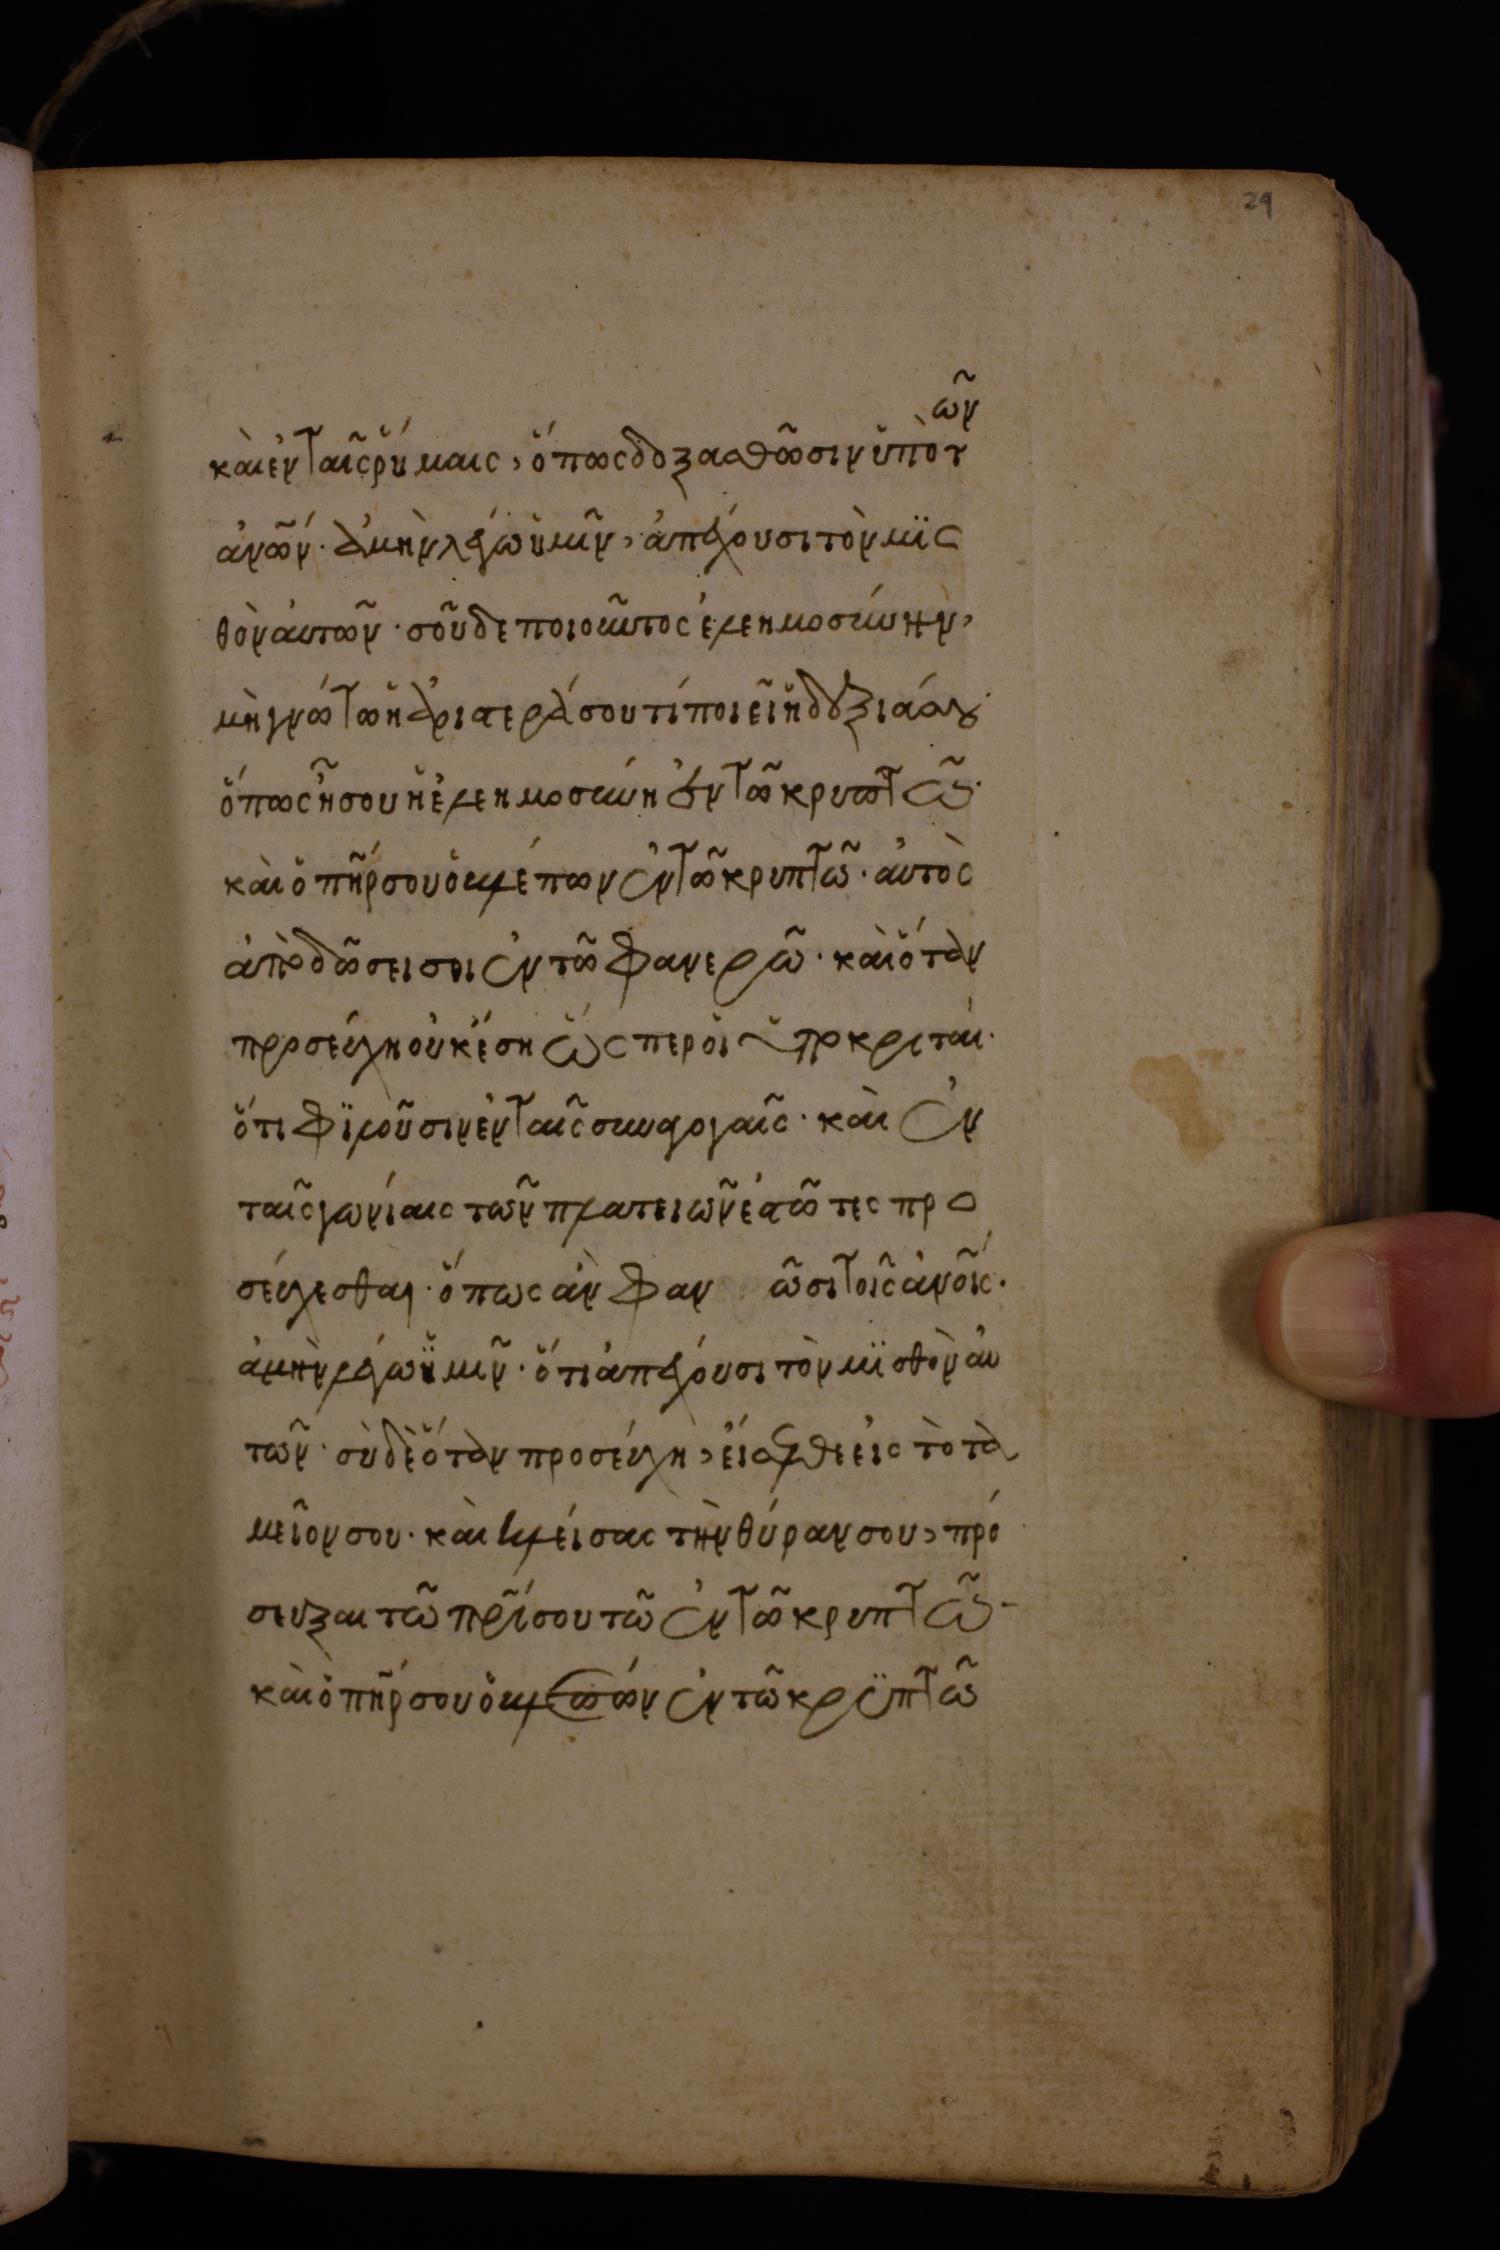 29
καὶ ἐν ταῖς ῥύμαις, ὅπως δοξασθῶσιν ὑπὸ τῶν
ἀνῶν· ἀμὴν λέγω ὑμῖν, ἀπέχουσι τὸν μϊς
θὸν αὐτῶν· σοῦ δε ποιοῦντος ἐλεημοσύνην,
μὴ γνώτω ἡ ἀριστερά σου τί ποιεῖ ἡ δεξιά σου·
ὅπως ἦ σου ἡ ἐλεημοσύνη ἐν τῶ κρυπτῶ·
καὶ ὁ πῆρ σου ὁ βλέπων ἐν τῶ κρυπτῶ· αὐτὸς
ἀποδῶσει σοι ἐν τῶ φανερῶ· καὶ ὅταν
προσεύχη οὐκ έση ὥσπερ οἱ ὑποκριταί·
ὅτι φϊλοῦσιν ἐν ταῖς συναγογαῖς· καὶ ἐν
ταῖς γωνίαις τῶν πλατειῶν ἑστῶτες προ
σεύχεσθαι· ὅπως ἀν φαν ῶσι τοῖς ἀνοῖς·
ἀμὴν λέγω ὑμῖν· ὅτι ἀπέχουσι τὸν μϊσθὸν αὐ
τῶν· σὺ δὲ ὅταν προσεύχη, εἴσελθε εἰς τὸ τα
μεῖον σου· καὶ κλείσας τὴν θύραν σου, πρό
σευξαι τῶ πρῖ σου τῶ ἐν τῶ κρυπτῶ·
καὶ ὁ πῆρ σου ὁ βλεπών ἐν τῶ κρϋπτῶ